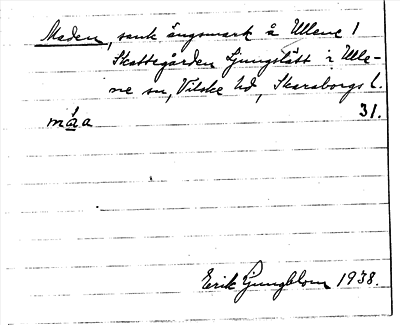 Maden, sank ängsmark å Ullene 1
Skattegården Ljungslätt i Ulle-
ne sn, Vilske hd, Skaraborgs l.
31.
måa
Erik Ljungblom 1938.